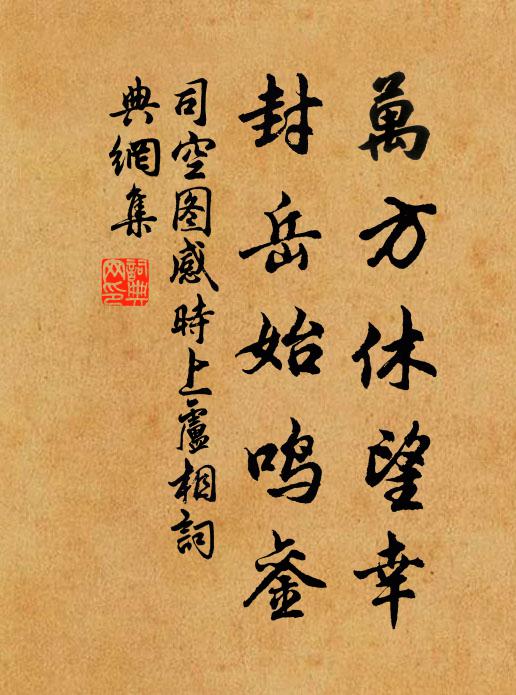 萬方休望幸
封岳始鳴鑾
司空图感時上盧相詞
典網集
詞典網印